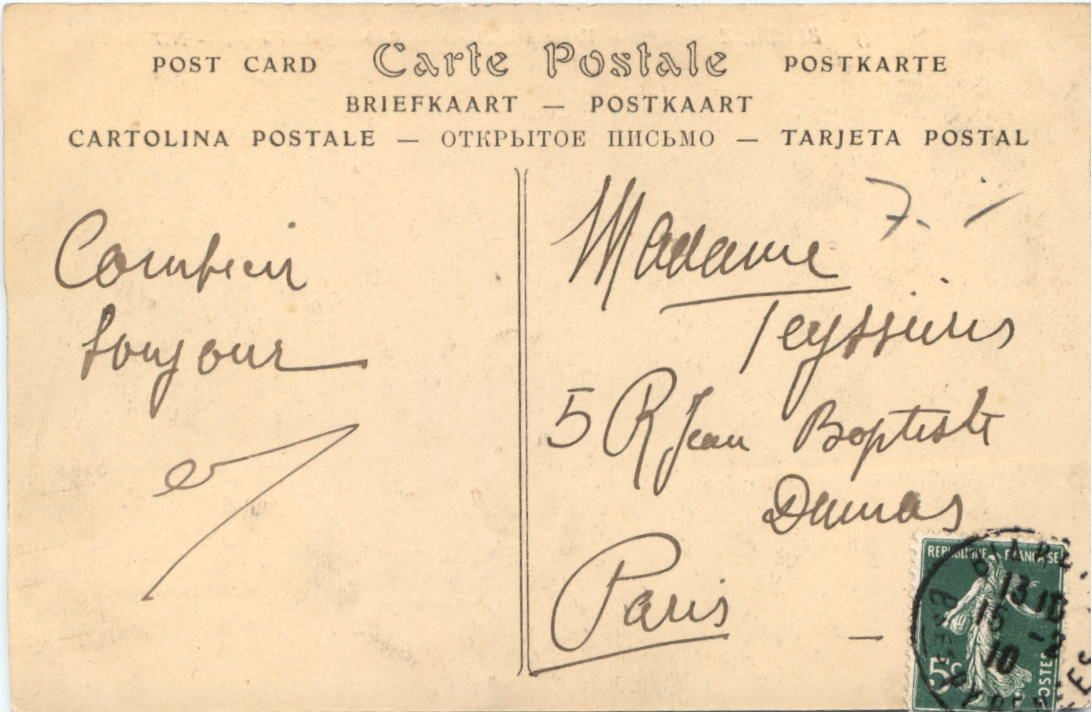 POST CARD Carte Postale POSTKARTE
BRIEFKAART — POSTKAART
CARTOLINA POSTALE — ОТКРЫТОЕ ПИСЬМО — TARJETA POSTAL
bonjour
Madame 7.
5 R Jean Baptiste
Dumas
Paris
REPUBLIQUE FRANÇAISE
13
15 - 2
10
5c
POSTES